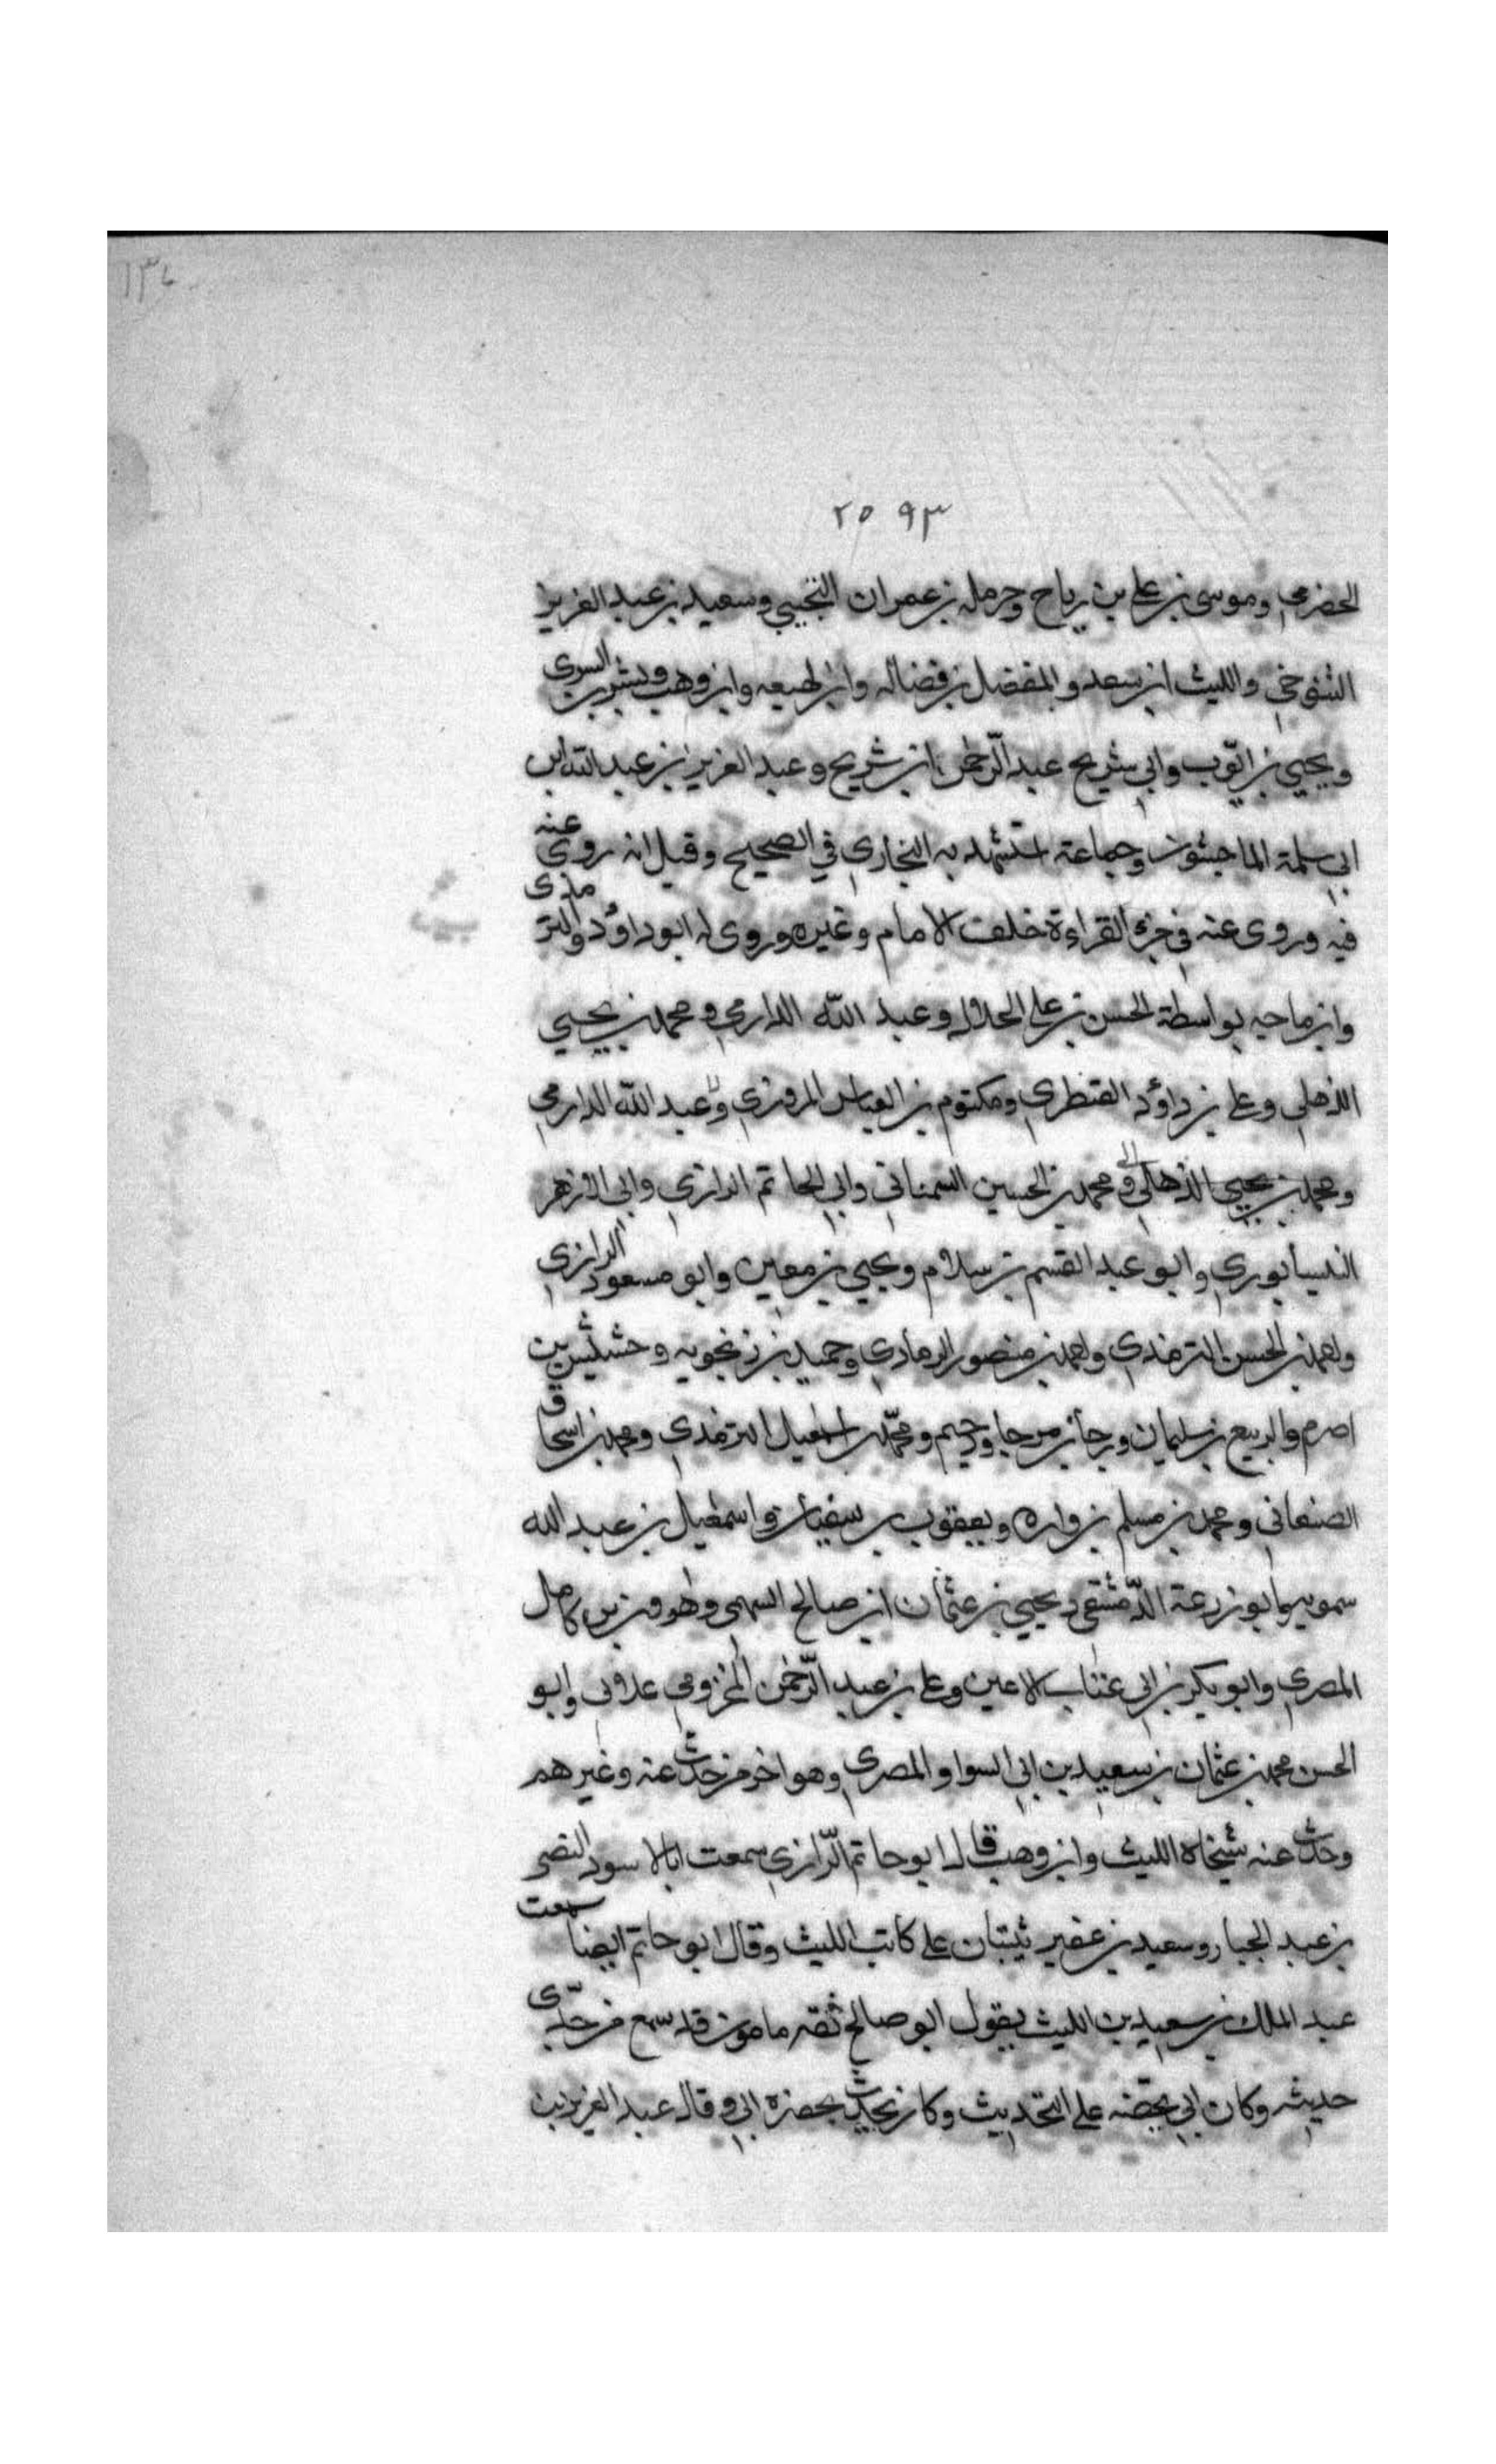 ١٣٦
٢٥ ٩٣
الحضرمي وموسى بن علي بن رباح وحرمله بن عمران التجيبي وسعيد بن عبد العزيز
التنوخي والليث ابن سعد والمفضل بن فضاله وابن لهيعه وابن وهب وبشر بن السرى
ويحيى بن ايوب وابي شريح عبد الرحمن ابن شريح وعبد العزيز بن عبد الله بن
ابي سلمة الماجشون وجماعة استشهد به البخاري في الصحيح وقيل انه روى عنه
فيه وروى عنه في جزء القراءة خلف الامام وغيره وروى له ابو داؤد والترمذى
وابن ماجه بواسطة الحسن بن علي الحلال وعبد الله الدارمي ومحمد بن يحيى
الذهلي وعلي بن داؤد القنطري ومكتوم بن العباس المروزي وعبد الله الدارمي
ومحمد بن يحيى الذهلي ومحمد بن الحسين السمناني وابي الحاتم الرازي وابي الازهر
النيسابوري وابو عبد القسم بن سلام ويحيى بن معين وابو مسعود الرازي
واحمد بن الحسن الترمذي واحمد بن منصور الرمادي وحميد بن زنجويه وخشيش بن
اصرم والربيع بن سليمان ورجا بن مرجا ودحيم ومحمد بن اسمعيل الترمذي ومحمد بن اسحاق
الصنعاني ومحمد بن مسلم بن واره ويعقوب بن سفيان واسمعيل بن عبد الله
سمويه وابو زرعة الدمشقي ويحيى بن عثمان ابن صالح السهمى وهرون بن كامل
المصري وابو بكر بن ابي عتاب الاعين وعلي بن عبد الرحمن المخزومي علان وابو
الحسن محمد بن عثمان بن سعيد بن ابي السوار المصري وهو اخر من حدث عنه وغيرهم
وحدث عنه شيخاه الليث وابن وهب قال ابو حاتم الرازي سمعت ابا الاسود النصر
بن عبد الجبار وسعيد بن عفير يثبتان على كاتب الليث وقال ابو حاتم ايضا سمعت
عبد الملك بن سعيد بن الليث يقول ابو صالح ثقه مامون قد سمع من جدى
حديثه وكان ابي يحضه على التحديث وكان يحدث بحضرة ابي وقال عبد العزيز بن